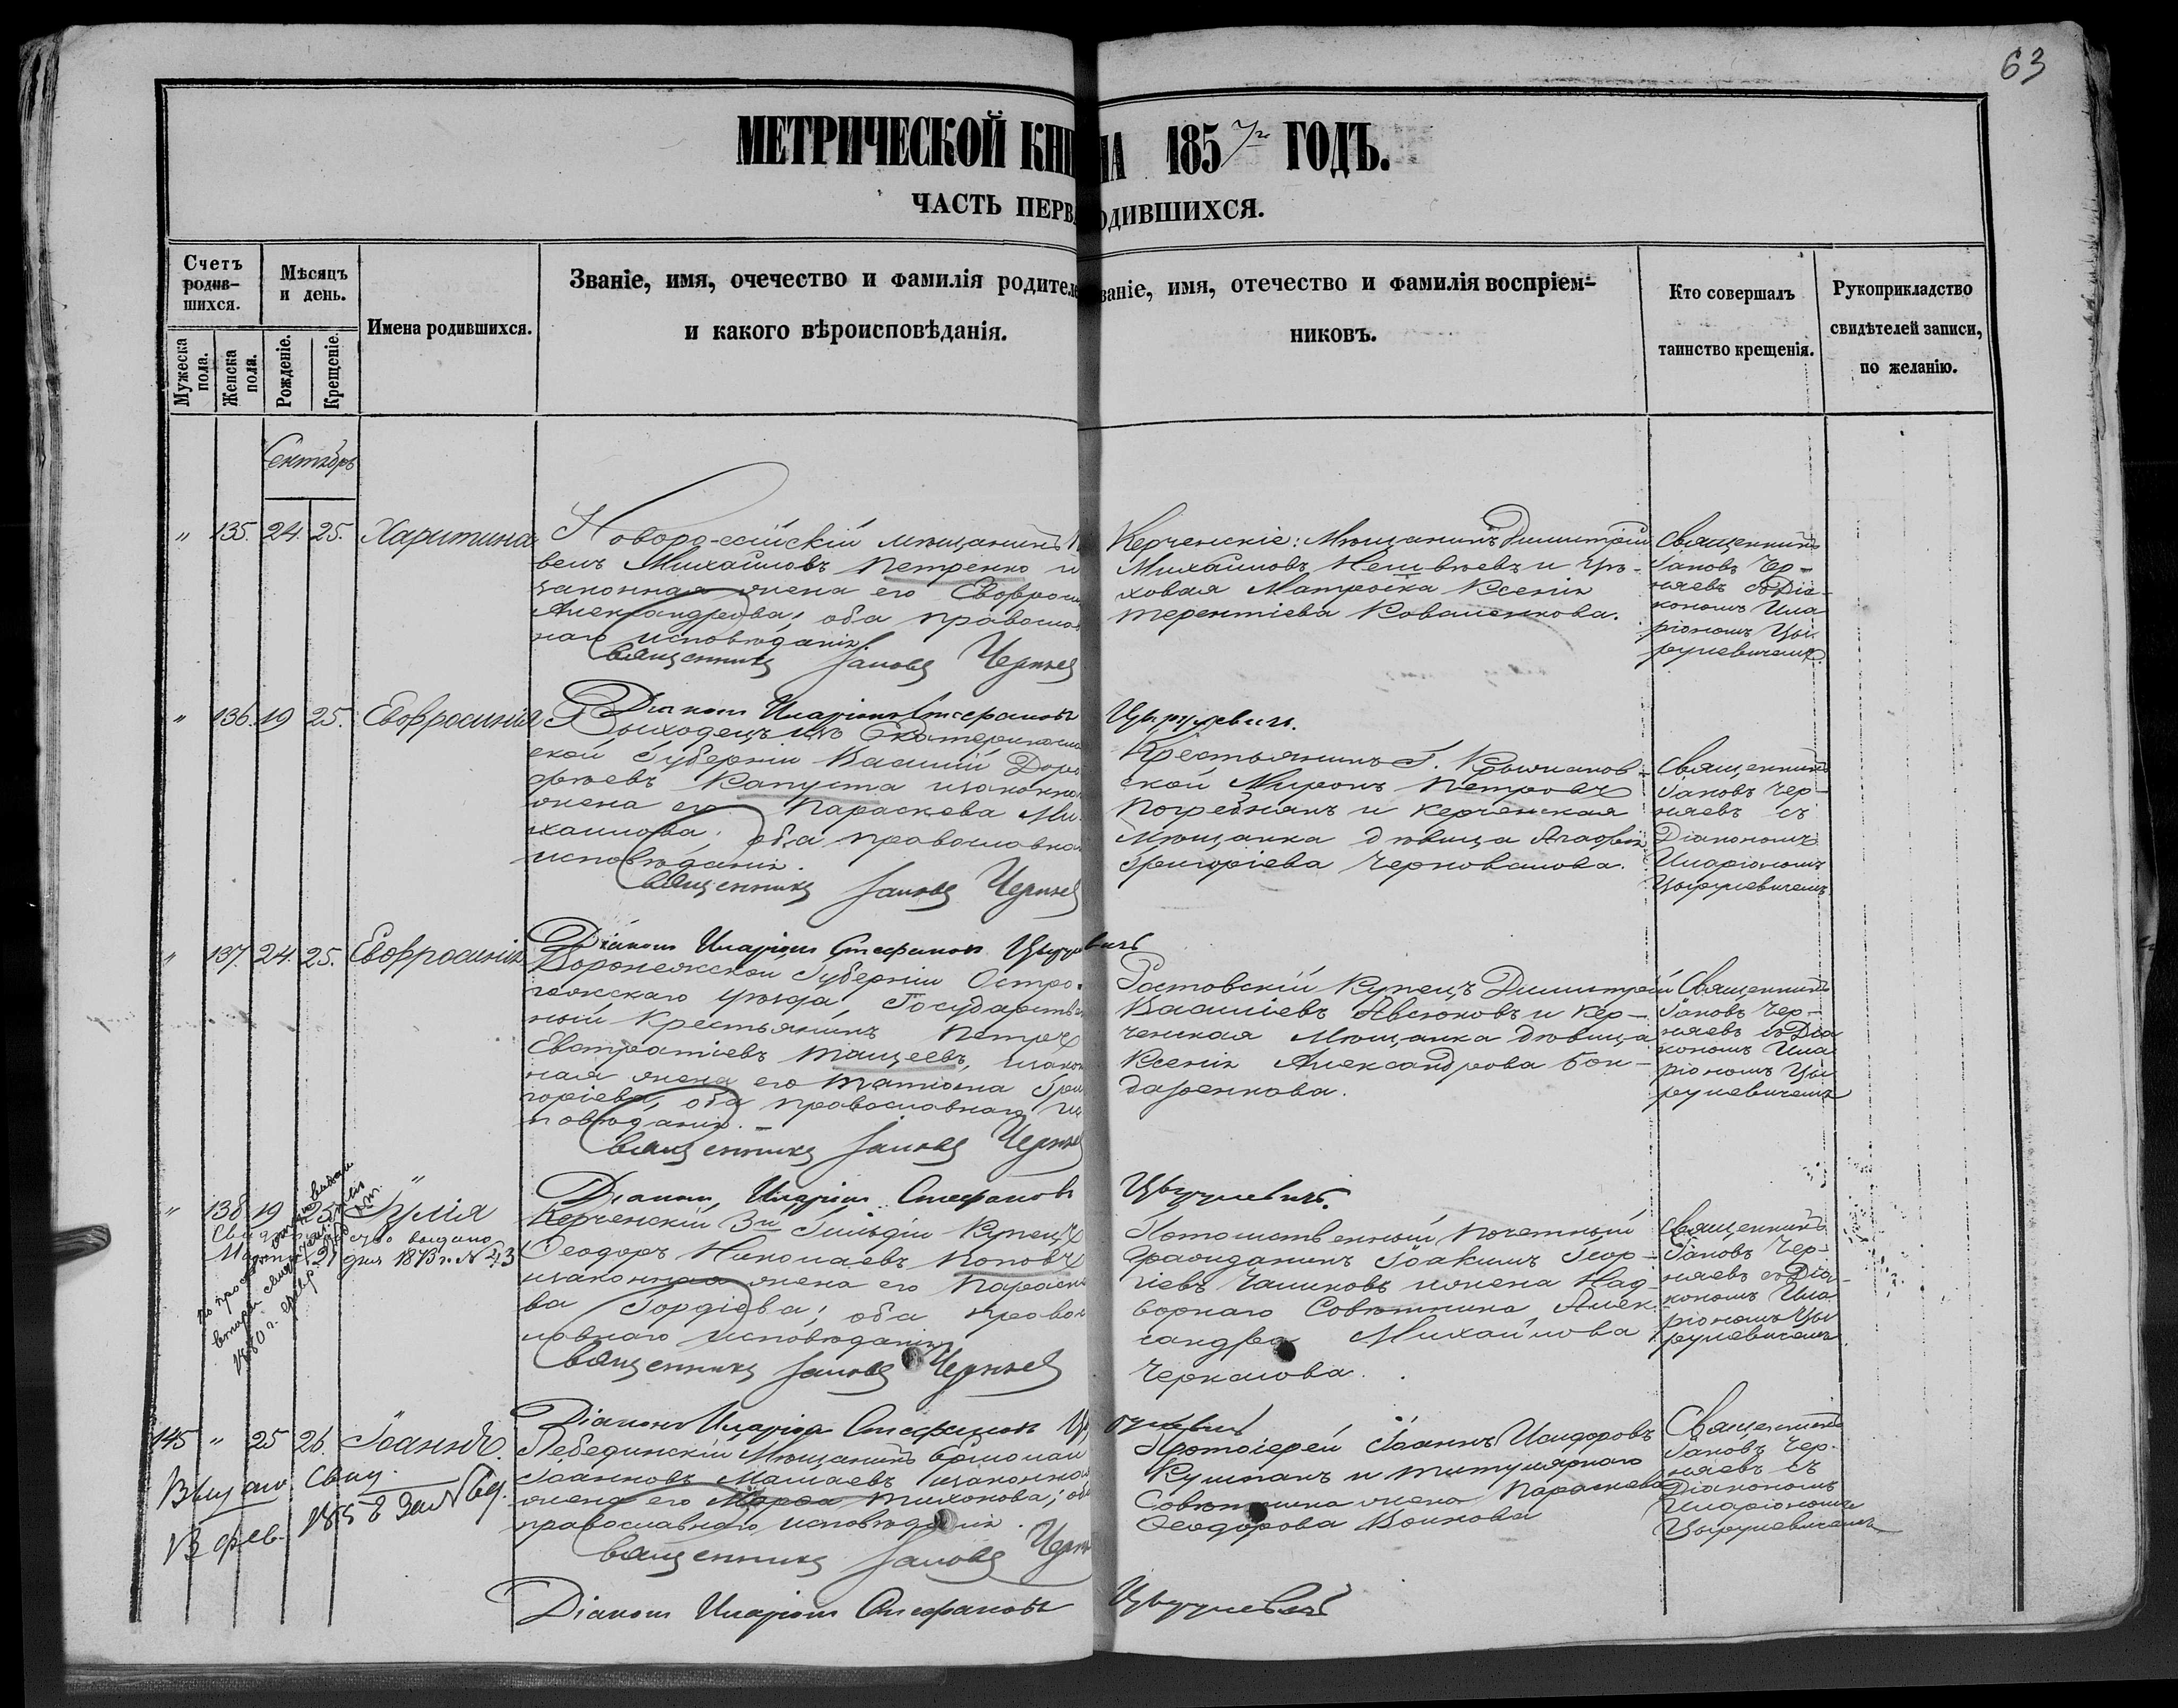 63
МЕТРИЧЕСКОЙ КНИ НА 1857 ГОДЪ.
ЧАСТЬ ПЕРВА ОДИВШИХСЯ.
Счетъ родив-шихся.
Мужеска пола.
Женска пола.
Мѣсяцъ и день.
Рожденіе.
Крещеніе.
Имена родившихся.
Званіе, имя, очечество и фамилія родителе
и какого вѣроисповѣданія.
ваніе, имя, отечество и фамилія воспріем-
никовъ.
Кто совершалъ
таинство крещенія.
Рукоприкладство
свидѣтелей записи,
по желанію.
Сентябрь
" 135. 24. 25. Харитина
Новоро-ссійскій мѣщанинъ
велъ Михайловъ Петренко и
законная жена его Евфроси
Александрова; оба православ
наго исповѣданія.
Священникъ Іаковъ Черняев
Керченскіе: Мѣщанинъ Димитрій
Михайловъ и Цѣ-
ховая Матроска Ксенія
Терентіева Коваленкова.
Священникъ
Іаковъ Чер-
няевъ съ Діа-
кономъ Ила
ріономъ Цы
рулевичемъ.
Діаконъ Иларіонъ Стефановъ Цырулевичъ.
" 136. 19 25. Евфросинія
Выходецъ изъ Екатеринослав
ской Губерніи Василій Доро
феевъ Капуста и законна
жена его Параскева Ми
хаилова; оба православна
исповѣданія.
Священникъ Іаковъ Черняев
Крестьянинъ Г.
ской Миронъ Петровъ
Погребнякъ и Керченская
Мѣщанка дѣвица Агафія
Григоріева Черновалова.
Священникъ
Іаковъ Чер-
няевъ съ
Діакономъ
Иларіономъ
Цырулевичемъ
Діаконъ Иларіонъ Стефановъ Цырулевичъ
" 137. 24. 25. Евфросинія
Воронежской Губерніи Остро-
гожскаго уѣзда, Государствен
ный Крестьянинъ Петръ
Евстратіевъ Тащеевъ, изакон
ная жена его Татіана Гри
горіева; оба православнаго ис
повѣданія.
Священникъ Іаковъ Черняев
Ростовскій Купецъ Димитрій
Василіевъ Авсюковъ и Кер-
ченская Мѣщанка дѣвица
Ксенія Александрова Бон-
даренкова.
Священникъ
Іаковъ Чер-
няевъ съ Діа
кономъ Ила
ріономъ Цы
рулевичемъ
Діаконъ Иларіонъ Стефановъ Цырулевичъ.
" 138. 19 25. Іулія
Свидѣтельство выдано
Марта 21 дня 1873 г. № 243
Керченскій 3й Гильдіи Купецъ
Ѳеодоръ Николаевъ Поповъ
изаконная жена его Параске
ва Гордіева; оба право
славнаго исповѣданія
Священникъ Іаковъ Черняев
Потомственный почетный
Гражданинъ Іоакимъ Геор-
гіевъ Чашковъ и жена Над
ворнаго Совѣтника Алек
сандра Михайлова
Черкасова.
Священникъ
Іаковъ Чер-
няевъ съ Діа-
кономъ Ила
ріономъ Цы
рулевичемъ
Діаконъ Иларіонъ Стефановъ Цырулевичъ
145 " 25 26. Іоаннъ.
Выдано свид.
В фев. 1858 За №
Лебединскій Мѣщанинъ Ермолай
Іоанновъ Малаевъ изаконная
жена его Марѳа Тихонова; оба
православнаго исповѣданія.
Священникъ Іаковъ Черня
Протоіерей Іоаннъ Исидоровъ
Кушнакъ и титулярнаго
Совѣтника жена Параскева
Ѳеодорова Воинова
Священникъ
Іаковъ Чер-
няевъ съ
Діакономъ
Иларіономъ
Цырулевичемъ
Діаконъ Иларіонъ Стефановъ Цырулевичъ